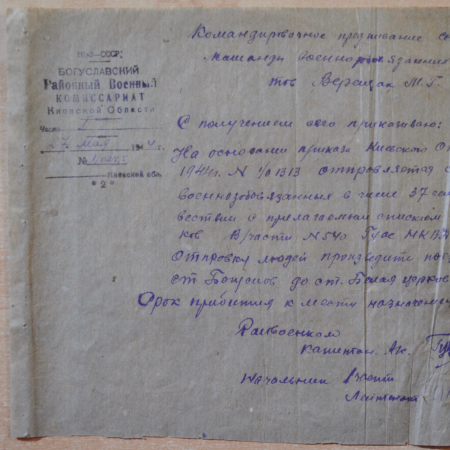 НКО-СССР
БОГУСЛАВСКИЙ
Районный Военный
КОМИССАРИАТ
Киевской Области
Часть 1
мая 194
№
Киевской обл.
"2"
Командировочное предписание
команды военнообязанных
тов Верещак М.Г.
С получением сего приказываю:
На основании приказа Киевского О
194 г. N 1/01313 отправляется
военнообязанныя в числе 37
вествии с прилагаемым списком
ков В/части N 540
Отправку людей произвести
ст Богуслов до ст. Белая церков
Срок прибытия к месту назначени
Райвоенком
капитан
Начальник 1 части
Лейтенант